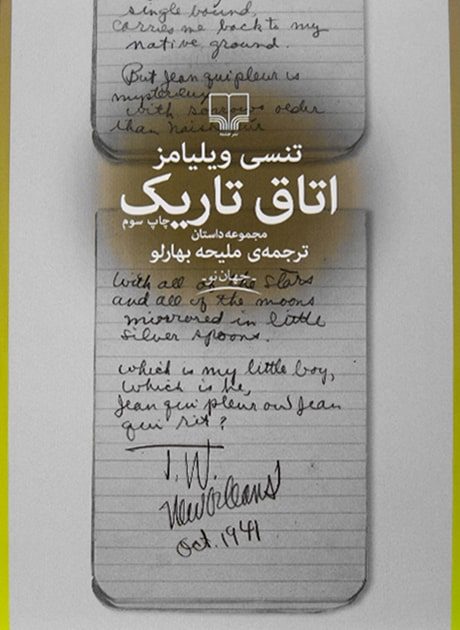 single bound,
carries me back to my
native ground.
But Jean qui pleur is
mysteries
with sorrows older
than
تنسی ویلیامز
اتاق تاریک
چاپ سوم
مجموعه داستان
ترجمه‌ی ملیحه بهارلو
جهان نو
With all of the stars
and all of the moons
mirrored in little
silver spoons.
Which is my little boy,
which is he,
Jean qui pleur ou Jean
qui rit?
T.W.
New Orleans
Oct. 1941